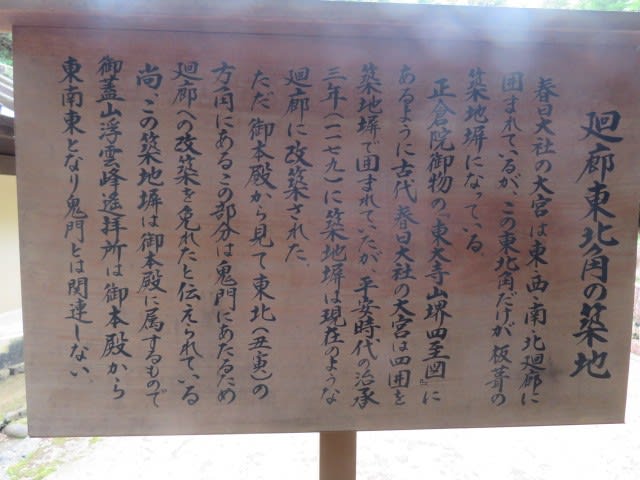 廻廊東北角の築地
春日大社の大宮は東・西・南・北廻廊に
囲まれているが、この東北角だけが板葺の
築地塀になっている。
正倉院御物の『東大寺山堺四至図』に
あるように古代春日大社の大宮は四囲を
築地塀で囲まれていたが、平安時代の治承
三年(一一七九)に築地塀は現在のような
廻廊に改築された。
ただ御本殿から見て東北(丑寅)の
方角にあるこの部分は鬼門にあたるため
廻廊への改築を免れたと伝えられている
尚、この築地塀は御本殿に属するもので
御蓋山浮雲峰遙拝所は御本殿から
東南東となり鬼門とは関連しない。